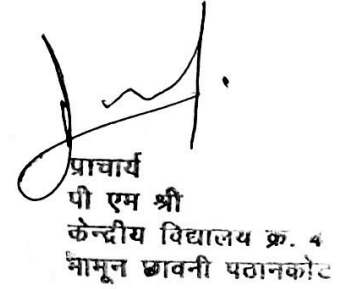 प्राचार्य
पी एम श्री
केन्द्रीय विद्यालय क्र. 4
मामून छावनी पठानकोट